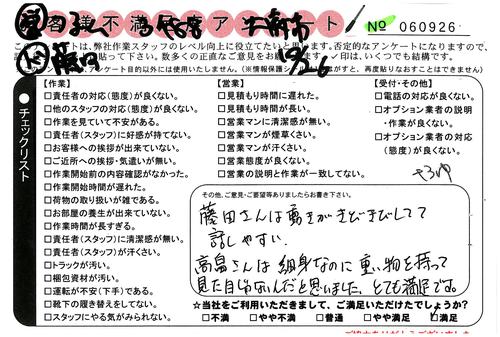 お客様不満足度アンケート
No 060926
このアンケートは、弊社作業スタッフのレベル向上に役立てたいと思います。否定的なアンケートになりますので、
下さい。数多くの正直なご意見をお願いします。✓印は、いくつでも結構です。
アンケート目的以外には使用いたしません。(※情報保護シールははがすと、再度貼りなおすことはできません)
チェックリスト
【作業】
□責任者の対応(態度)が良くない。
□他のスタッフの対応(態度)が良くない。
□作業を見ていて不安がある。
□責任者(スタッフ)に好感が持てない。
□お客様への挨拶が出来ていない。
□ご近所への挨拶・気遣いが無い。
□作業開始前の内容確認がなかった。
□作業開始時間が遅れた。
□荷物の取り扱いが雑である。
□お部屋の養生が出来ていない。
□作業時間が長すぎる。
□責任者(スタッフ)に清潔感が無い。
□責任者(スタッフ)が汗くさい。
□トラックが汚い。
□梱包資材が汚い。
□運転が不安(下手)である。
□靴下の履き替えをしてない。
□スタッフにやる気がみられない。
【営業】
□見積もり時間に遅れた。
□見積もり時間が長い。
□営業マンに清潔感が無い。
□営業マンが煙草くさい。
□営業マンが汗くさい。
□営業態度が良くない。
□営業の説明と作業が一致してない。
【受付・その他】
□電話の対応が良くない。
□オプション業者の説明
・作業が良くない。
□オプション業者の対応
(態度)が良くない。
その他、ご意見・ご要望等ありましたらお書き下さい。
藤田さんは動きがきびきびしてて
話しやすい。
高畠さんは細身なのに重い物を持って
見た目じゃないんだと思いました。とても満足です。
☆当社をご利用いただきまして、ご満足いただけたでしょうか?
□不満 □やや不満 □普通 □やや満足 □満足